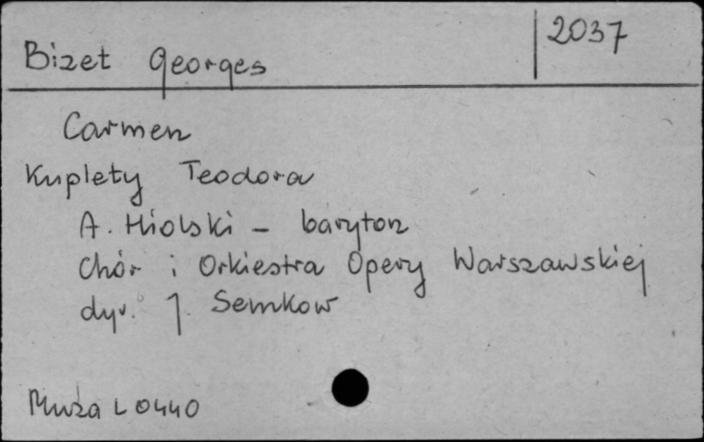 Bizet Georges
2037
Carmen
Kuplety Teodora
A. Hiolski - baryton
Chór i Orkiestra Opery Warszawskiej
dyr. J. Semkow
Muza L 0440